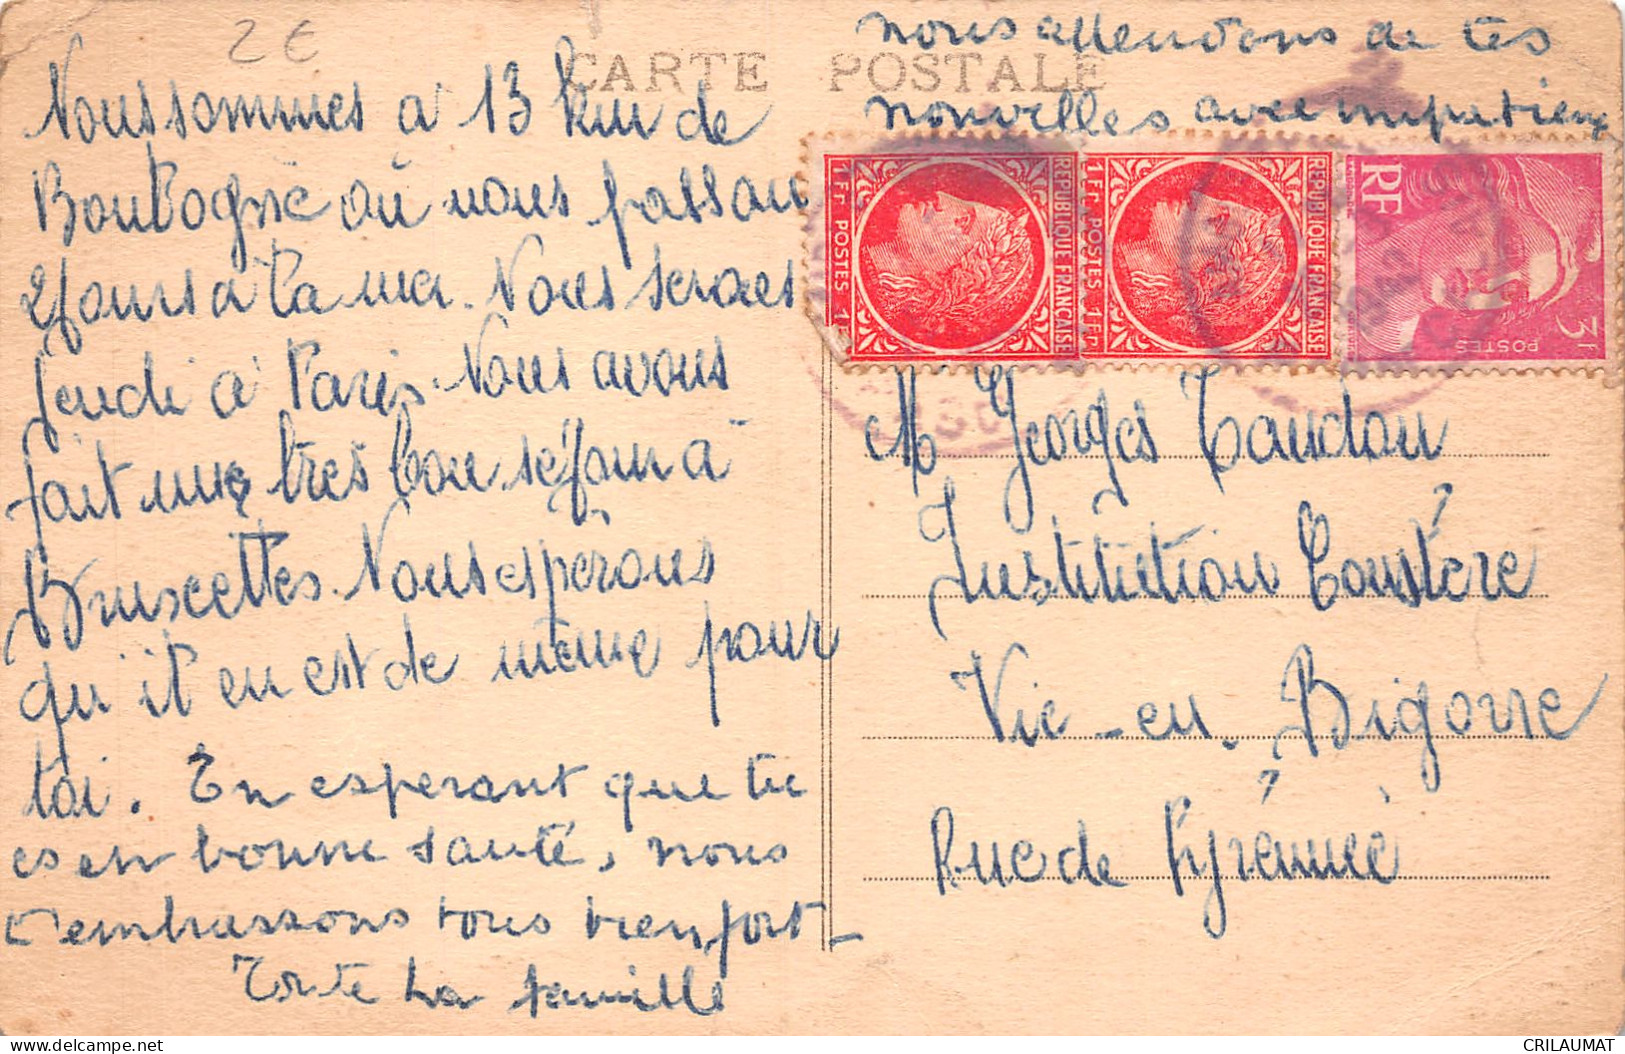 2€
CARTE POSTALE
Nous sommes à 13 km de
Boulogne où nous passon
2 jours à la mer. Nous serons
jeudi à Paris. Nous avons
fait une très bon séjour à
Bruxelles. Nous espérons
qu'il en est de même pour
toi. En esperant que tu
es en bonne santé, nous
t'embrassons tous bien fort -
Toute la famille
nous attendons de tes
nouvelles avec impatienc
1Fr POSTES 1Fr
REPUBLIQUE FRANÇAISE
1Fr POSTES 1Fr
REPUBLIQUE FRANÇAISE
RF
POSTES 3f
M Georges
Institution
Vic-en-Bigorre
Rue de Pyrénnée
CRILAUMAT